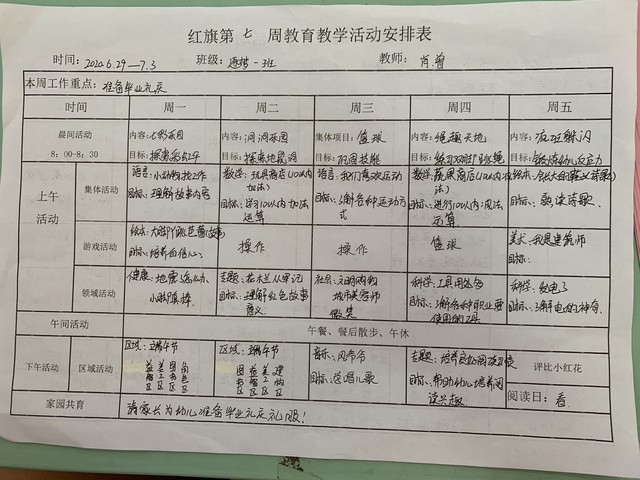 红旗第 七 周教育教学活动安排表
时间：2020.6.29—7.3 班级： 一班 教师：肖 曾
本周工作重点：准备毕业礼庆
时间 周一 周二 周三 周四 周五
晨间活动
8：00-8：30
内容：七彩乐园
目标：
内容：泡泡乐园
目标：
集体项目：篮球
目标：巩固技能
内容：绳趣天地
目标：练习双脚跳绳
内容：疯狂躲闪
目标：锻炼幼儿反应力
上午
活动
集体活动
语言：小动物找工作
目标：理解故事内容
数学：玩具商店(10以内
加法)
目标：学习10以内加法
运算
语言：我们喜欢运动
目标：了解各种运动方
式
数学：蔬果商店(10以内减
法)
目标：进行10以内减法
运算
目标：熟读诗歌.
游戏活动
目标：培养自信心
操作
操作
篮球
美术：我是建筑师
目标：
领域活动
健康：地震
小动物
主题：花木兰从军记
目标：理解红色故事
意义
社会：文明购物
城市美容师
微笑
科学：工具用处多
目标：了解各种职业要
使用的工具
科学：发电了
目标：了解电的神奇.
午间活动 午餐、餐后散步、午休
下午活动
区域活动
区域：端午节
区域：端午节
音乐：风爷爷
目标：学唱儿歌
主题：培养良好阅读习惯
目标：帮助幼儿培养阅
读兴趣.
评比小红花
阅读日：看.
家园共育 请家长为幼儿准备毕业礼庆礼服！